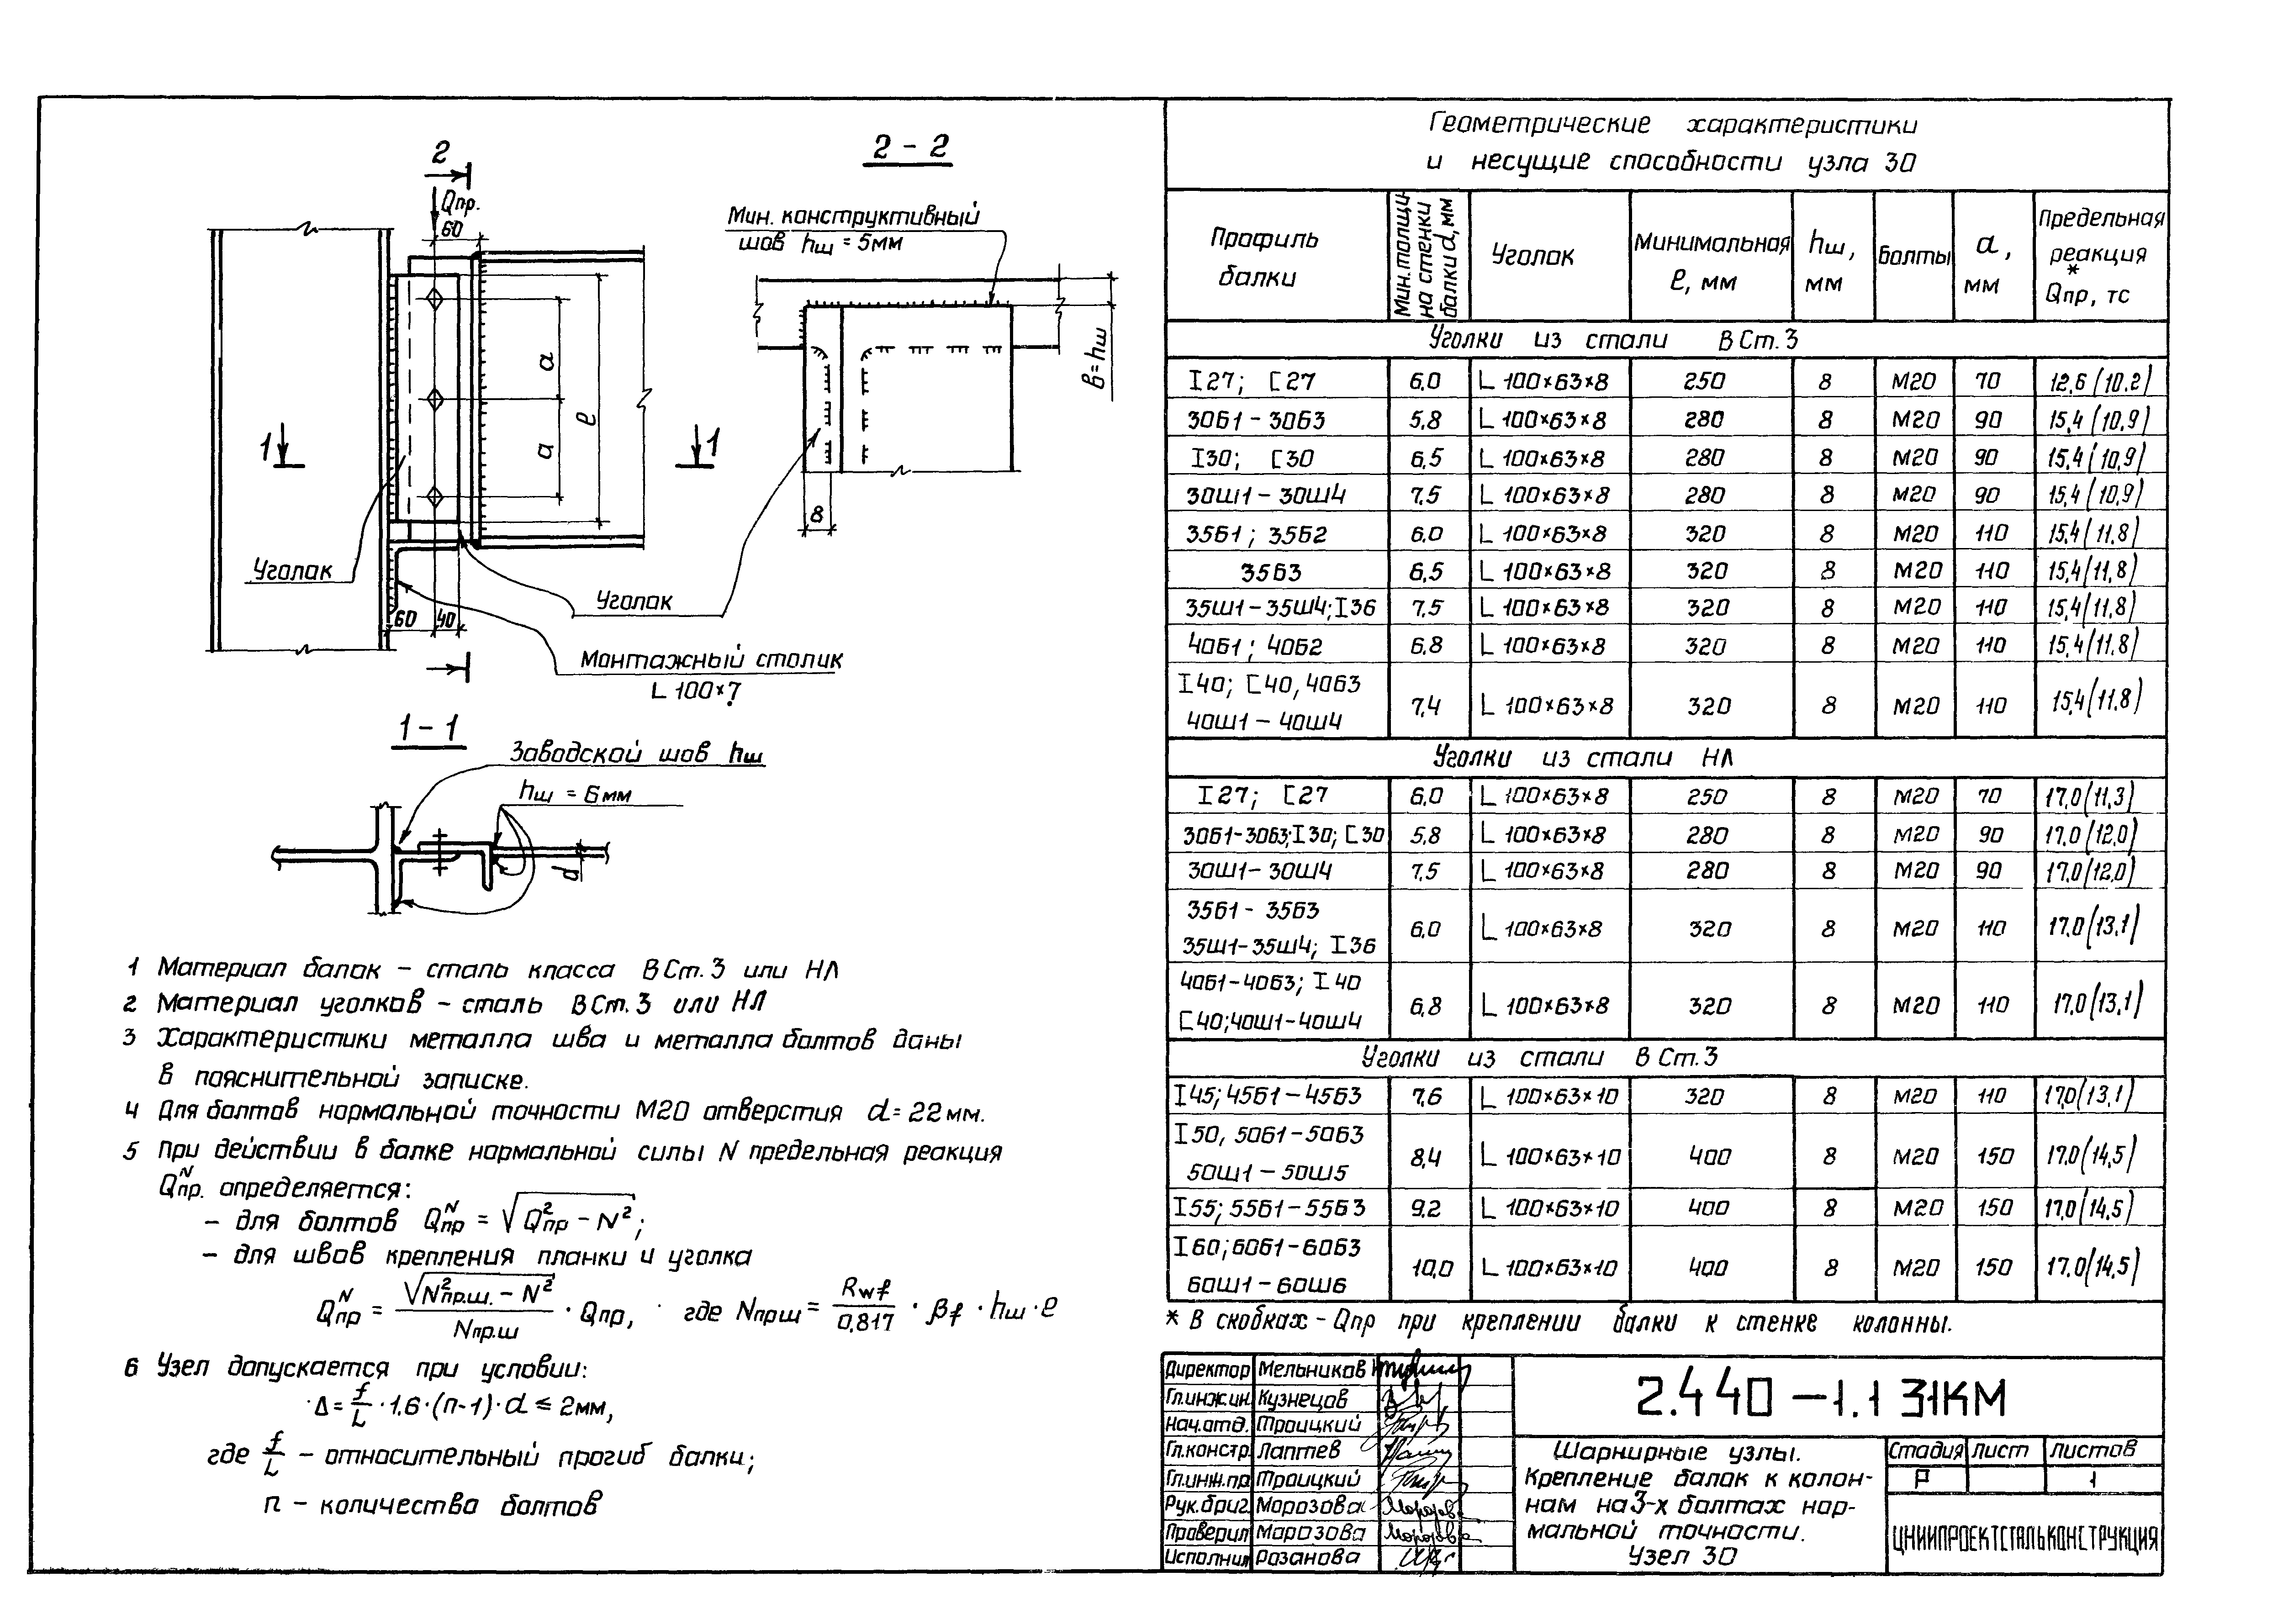 2
Qпр.
60
1
1
а
а
ℓ
Уголок
60
40
Уголок
Монтажный столик
L 100×7
2 - 2
Мин. конструктивный
шов hш = 5мм
в=hш
8
1 - 1
Заводской шов hш
hш = 6мм
d
1 Материал балок – сталь класса ВСт.3 или НЛ
2 Материал уголков – сталь ВСт.3 или НЛ
3 Характеристики металла шва и металла болтов даны
в пояснительной записке.
4 Для болтов нормальной точности М20 отверстия d=22мм.
5 При действии в балке нормальной силы N предельная реакция
Qᴺпр. определяется:
– для болтов Qᴺпр = √(Q²пр – N²);
– для швов крепления планки и уголка
Qᴺпр = √(N²пр.ш. – N²) / Nпр.ш · Qпр, где Nпрш = Rwf / 0,817 · βf · hш · ℓ
6 Узел допускается при условии:
Δ = f/L · 1,6 · (n-1) · d ≤ 2мм,
где f/L – относительный прогиб балки;
n – количество болтов
Геометрические характеристики
и несущие способности узла 30
Профиль балки | Мин. толщина стенки балки d, мм | Уголок | Минимальная ℓ, мм | hш, мм | Болты | а, мм | Предельная реакция * Qпр, тс
Уголки из стали ВСт.3
I27; [27 | 6,0 | L 100×63×8 | 250 | 8 | М20 | 70 | 12,6 (10,2)
30Б1 – 30Б3 | 5,8 | L 100×63×8 | 280 | 8 | М20 | 90 | 15,4 (10,9)
I30; [30 | 6,5 | L 100×63×8 | 280 | 8 | М20 | 90 | 15,4 (10,9)
30Ш1 – 30Ш4 | 7,5 | L 100×63×8 | 280 | 8 | М20 | 90 | 15,4 (10,9)
35Б1; 35Б2 | 6,0 | L 100×63×8 | 320 | 8 | М20 | 110 | 15,4 (11,8)
35Б3 | 6,5 | L 100×63×8 | 320 | 8 | М20 | 110 | 15,4 (11,8)
35Ш1–35Ш4; I36 | 7,5 | L 100×63×8 | 320 | 8 | М20 | 110 | 15,4 (11,8)
40Б1; 40Б2 | 6,8 | L 100×63×8 | 320 | 8 | М20 | 110 | 15,4 (11,8)
I40; [40, 40Б3
40Ш1 – 40Ш4 | 7,4 | L 100×63×8 | 320 | 8 | М20 | 110 | 15,4 (11,8)
Уголки из стали НЛ
I27; [27 | 6,0 | L 100×63×8 | 250 | 8 | М20 | 70 | 17,0 (11,3)
30Б1–30Б3; I30; [30 | 5,8 | L 100×63×8 | 280 | 8 | М20 | 90 | 17,0 (12,0)
30Ш1 – 30Ш4 | 7,5 | L 100×63×8 | 280 | 8 | М20 | 90 | 17,0 (12,0)
35Б1 – 35Б3
35Ш1–35Ш4; I36 | 6,0 | L 100×63×8 | 320 | 8 | М20 | 110 | 17,0 (13,1)
40Б1–40Б3; I40
[40; 40Ш1–40Ш4 | 6,8 | L 100×63×8 | 320 | 8 | М20 | 110 | 17,0 (13,1)
Уголки из стали ВСт.3
I45; 45Б1 – 45Б3 | 7,6 | L 100×63×10 | 320 | 8 | М20 | 110 | 17,0 (13,1)
I50, 50Б1–50Б3
50Ш1 – 50Ш5 | 8,4 | L 100×63×10 | 400 | 8 | М20 | 150 | 17,0 (14,5)
I55; 55Б1 – 55Б3 | 9,2 | L 100×63×10 | 400 | 8 | М20 | 150 | 17,0 (14,5)
I60; 60Б1–60Б3
60Ш1 – 60Ш6 | 10,0 | L 100×63×10 | 400 | 8 | М20 | 150 | 17,0 (14,5)
* В скобках – Qпр при креплении балки к стенке колонны.
Директор Мельников
Гл.инж.ин. Кузнецов
Нач.отд. Троицкий
Гл.констр. Лаптев
Гл.инж.пр. Троицкий
Рук.бриг. Морозова
Проверил Морозова
Исполнил Розанова
2.440 – 1.1 31КМ
Шарнирные узлы.
Крепление балок к колон-
нам на 3-х болтах нор-
мальной точности.
Узел 30
Стадия Лист Листов
Р 1
ЦНИИПРОЕКТСТАЛЬКОНСТРУКЦИЯ